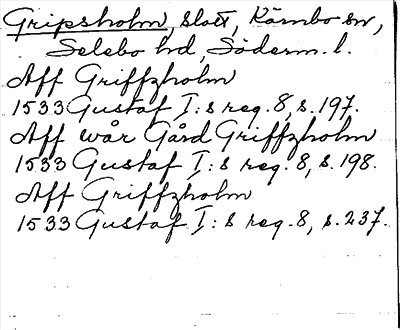 Gripsholm, slott, Kärnbo sn,
Selebo hd, Söderm. l.
Aff Griffzholm
1533 Gustaf I:s reg. 8, s. 197.
Aff wår Gård Griffzholm
1533 Gustaf I:s reg. 8, s. 198.
Aff Griffzholm
1533 Gustaf I:s reg. 8, s. 237.